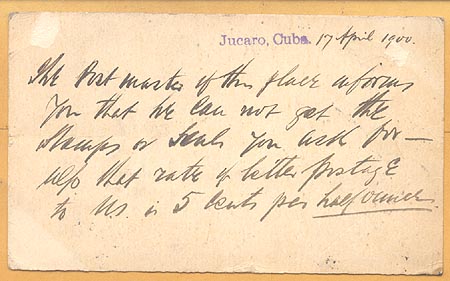 Jucaro, Cuba. 17 April 1900.
The Postmaster of this place informs
you that he can not get the
stamps or seals you ask for —
also that rate of letter postage
to U.S. is 5 cents per half ounce.